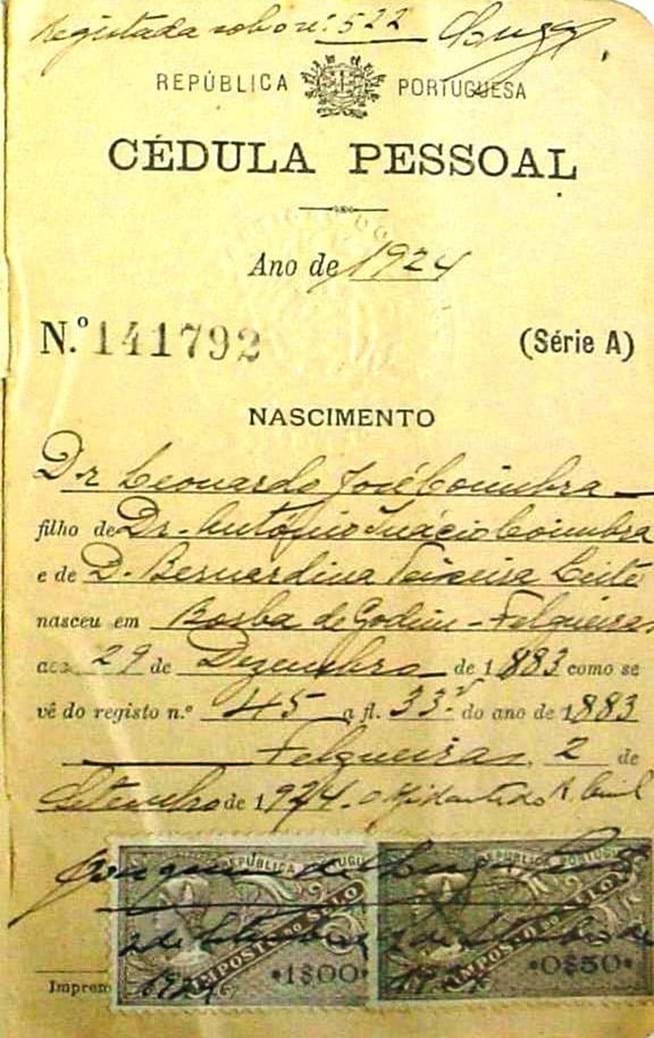 Registada sob o nº 522
REPÚBLICA PORTUGUESA
CÉDULA PESSOAL
Ano de 1924
N.º 141792 (Série A)
NASCIMENTO
Dr Leonardo José Coimbra
filho de Dr. António Inácio Coimbra
e de D. Bernardina Teixeira Leite
nasceu em Borba de Godim - Felgueiras
aos 29 de Dezembro de 1883 como se
vê do registo n.º 45 a fl. 33 v. do ano de 1883
Felgueiras, 2 de
Setembro de 1924. O Ajudante do R. Civil
Joaquim de
REPÚBLICA PORTUGUESA REPÚBLICA PORTUGUESA
IMPOSTO DO SELO IMPOSTO DO SELO
2 de Setembro 2 de Setembro de
1924
1$00 0$50